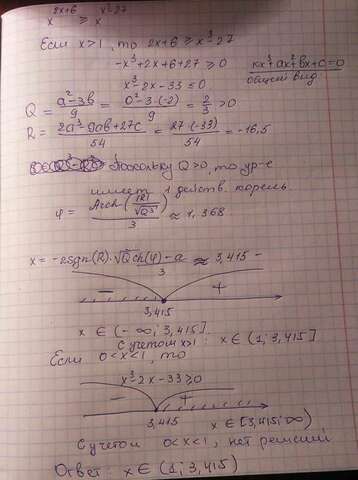 x^(2x+6) ≥ x^(x³-27)
Если x>1, то 2x+6 ≥ x³-27
-x³+2x+6+27 ≥ 0
x³-2x-33 ≤ 0
kx³+ax²+bx+c=0
общий вид
Q = (a²-3b)/9 = (0²-3·(-2))/9 = 2/3 > 0
R = (2a³-9ab+27c)/54 = (27·(-33))/54 = -16,5
Поскольку Q>0, то ур-е
имеет 1 действ. корень.
φ = Arch(|R|/√Q³)/3 ≈ 1,368.
x = -2sgn(R)·√Q ch(φ) - a/3 ≈ 3,415
- +
3,415
x ∈ (-∞; 3,415].
С учетом x>1: x ∈ (1; 3,415]
Если 0<x<1, то
x³-2x-33 ≥ 0
- +
3,415
x ∈ [3,415; ∞)
С учетом 0<x<1, нет решений
Ответ: x ∈ (1; 3,415)